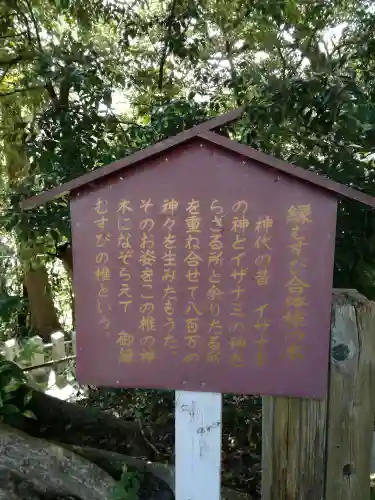 縁むすび合体椎の木
神代の昔 イザナギ
の神とイザナミの神が
らざる所と余りたる所
を重ね合せて八百万の
神々を生みたもうた。
そのお姿をこの椎の神
木になぞらえて 御縁
むすびの椎という。